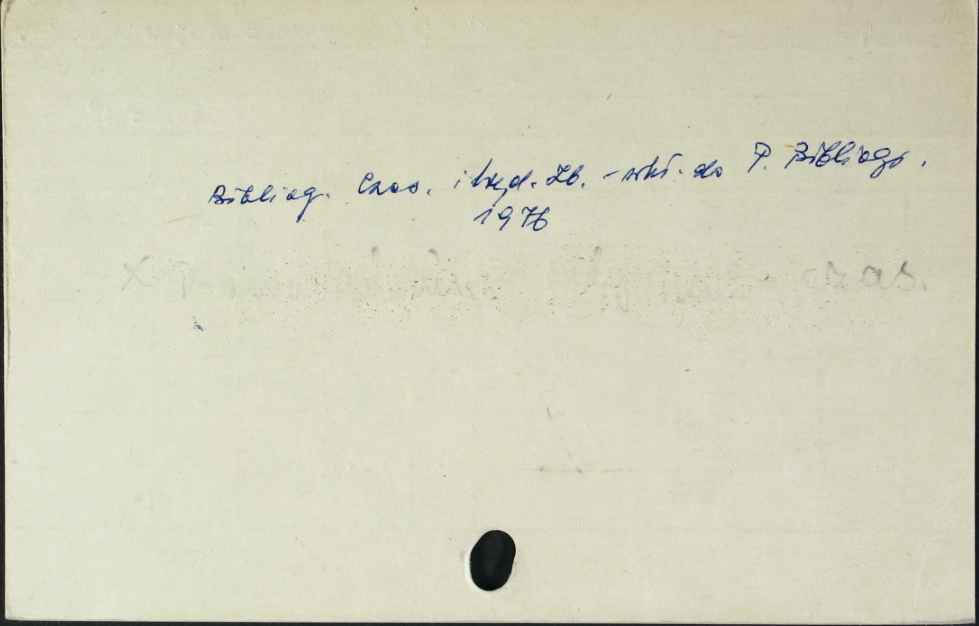 Bibliog. Czas. i Wyd. Zb. - wkł. do P. Bibliogr.
1976
czas.